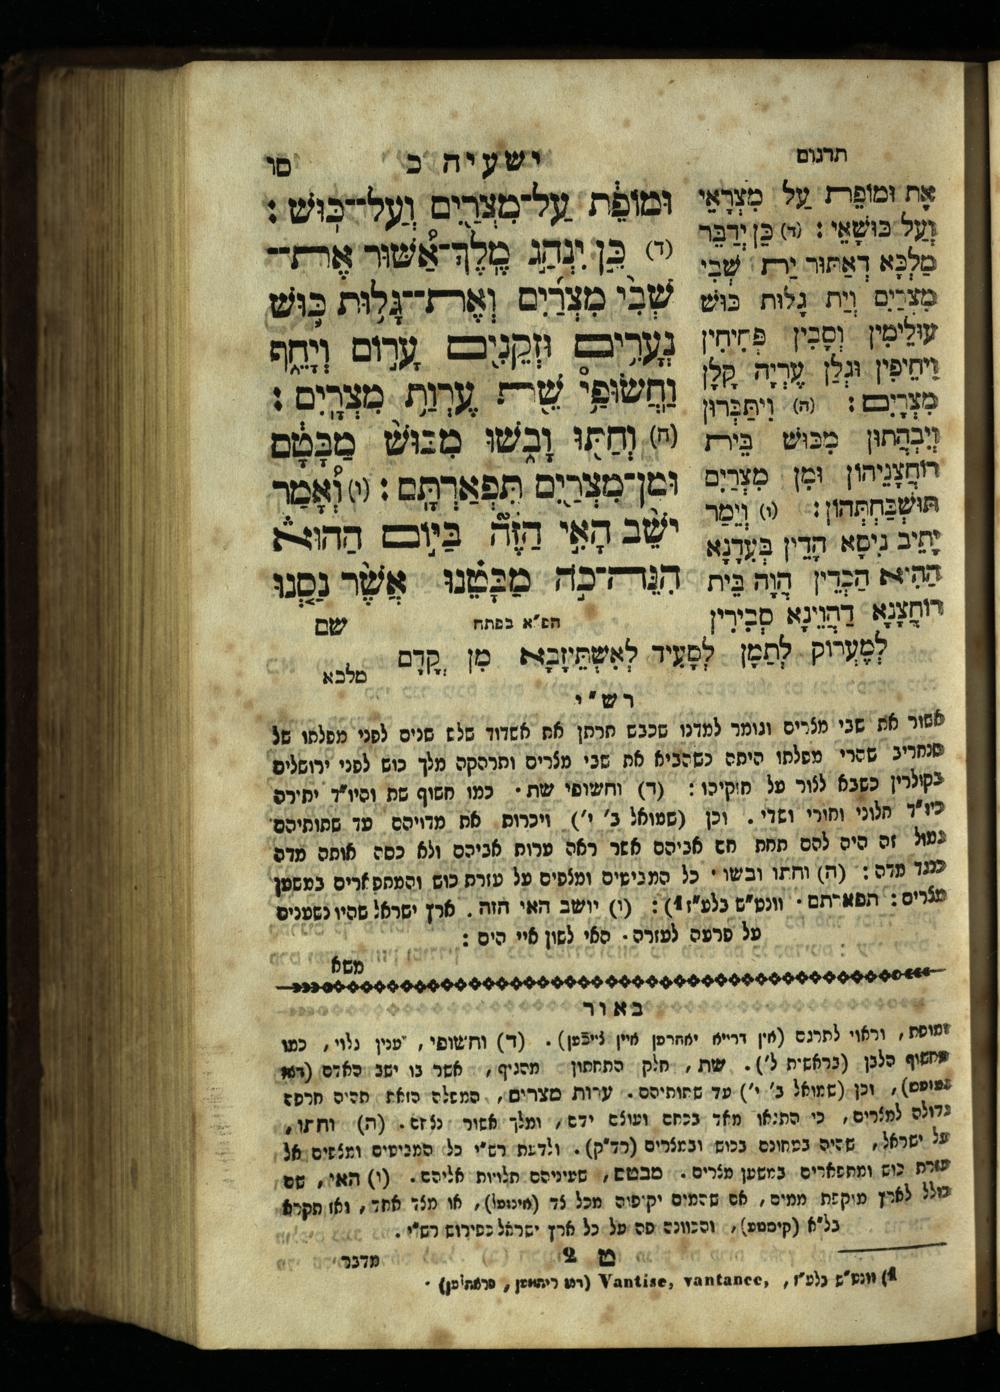 תרגום
ישעיה כ
סו
אָת וּמוֹפֵת עַל מִצְרָאֵי
וְעַל כּוּשָׁאֵי : (ד) כֵּן יְדַבַּר
מַלְכָּא דְאַתּוּר יַת שְׁבִי
מִצְרַיִם וְיַת גָלוּת כּוּשׁ
עוּלֵימִין וְסָבִין פְּחִיחִין
וִיחֵיפִין וּגְלַן עֶרְיָה קְלָן
מִצְרָיִם : (ה) וְיִתַּבְּרוּן
וְיִבְהֲתוּן מִכּוּשׁ בֵּית
רוֹחֲצָנֵיהוֹן וּמִן מִצְרַיִם
תּוּשְׁבַּחְתְּהוֹן : (ו) וְיֵמַר
יָתֵיב נִיסָא הָדֵין בְּעִדָנָא
הַהִיא הַכְדֵין הֲוָה בֵּית
רוֹחֲצָנָא דַהֲוֵינָא סְבִירִין
לְמֶעְרוֹק לְתַמָּן לְסָעִיד לְאִשְׁתֵּיזָבָא מִן קֳדָם
מלכא
וּמוֹפֵת עַל־מִצְרַיִם וְעַל־כּוּשׁ :
(ד) כֵּן יִנְהַג מֶלֶךְ־אַשּׁוּר אֶת־
שְׁבִי מִצְרַיִם וְאֶת־גָּלוּת כּוּשׁ
נְעָרִים וּזְקֵנִים עָרוֹם וְיָחֵף
וַחֲשׂוּפַי שֵׁת עֶרְוַת מִצְרָיִם :
(ה) וְחַתּוּ וָבֹשׁוּ מִכּוּשׁ מַבָּטָם
וּמִן־מִצְרַיִם תִּפְאַרְתָּם : (ו) וְאָמַר
יֹשֵׁב הָאִי הַזֶּה בַּיּוֹם הַהוּא
הִנֵּה־כֹה מַבָּטֵנוּ אֲשֶׁר נַסְנוּ
הפ״א בפתח
שם
רש״י
אשור את שבי מצרים וגומר למדנו שכבש תרתן את אשדוד שלש שנים לפני מפלתו של
סנחריב שהרי מפלתו היתה כשהביא את שבי מצרים ותרהקה מלך כוש לפני ירושלים
בקולרין כשבא לצור על חזקיהו : (ד) וחשופי שת . כמו חשוף שת והיו״ד יתירה
כיו״ד חלוני וחורי ושדי . וכן (שמואל ב׳ י׳) ויכרות את מדויהם עד שתותיהם
גמול זה היה להם תחת חם אביהם אשר ראה ערות אביהם ולא כסה אותה מדה
כנגד מדה : (ה) וחתו ובשו . כל המביטים ומצפים על עזרת כוש והמתפארים במשען
מצרים : תפארתם . וונט״ש בלע״ז 1) : (ו) יושב האי הזה . ארץ ישראל שהיו נשענים
על פרעה לעזרה . האי לשון איי הים :
משא
באור
ומופת, וראוי לתרגם (אין דרייא יאהרען איין צייכען) . (ד) וחשופי, ענין גלוי, כמו
מחשוף הלבן (בראשית ל׳) . שת, חלק התחתון מהגוף, אשר בו ישב האדם
, וכן (שמואל ב׳ י׳) עד שתותיהם . ערות מצרים, המפלה הזאת תהיה חרפה
גדולה למצרים, כי התגאו מאד בכחם ועוצם ידם, ומלך אשור נצחם . (ה) וחתו,
על ישראל, שהיה בטחונם בכוש ובמצרים (רד״ק) . ולדעת רש״י כל המביטים ומצפים אל
עזרת כוש ומתפארים במשען מצרים . מבטם, שעיניהם תלויות אליהם . (ו) האי, שם
כולל לארץ מוקפת ממים, אם שהמים יקיפוה מכל צד (אינזעל), או מצד אחד, ואז תקרא
בל״א (קיסטע), והכוונה פה על כל ארץ ישראל כפירוש רש״י .
ט 2
מדבר
1) וונט״ש בלע״ז, Vantise, vantance,